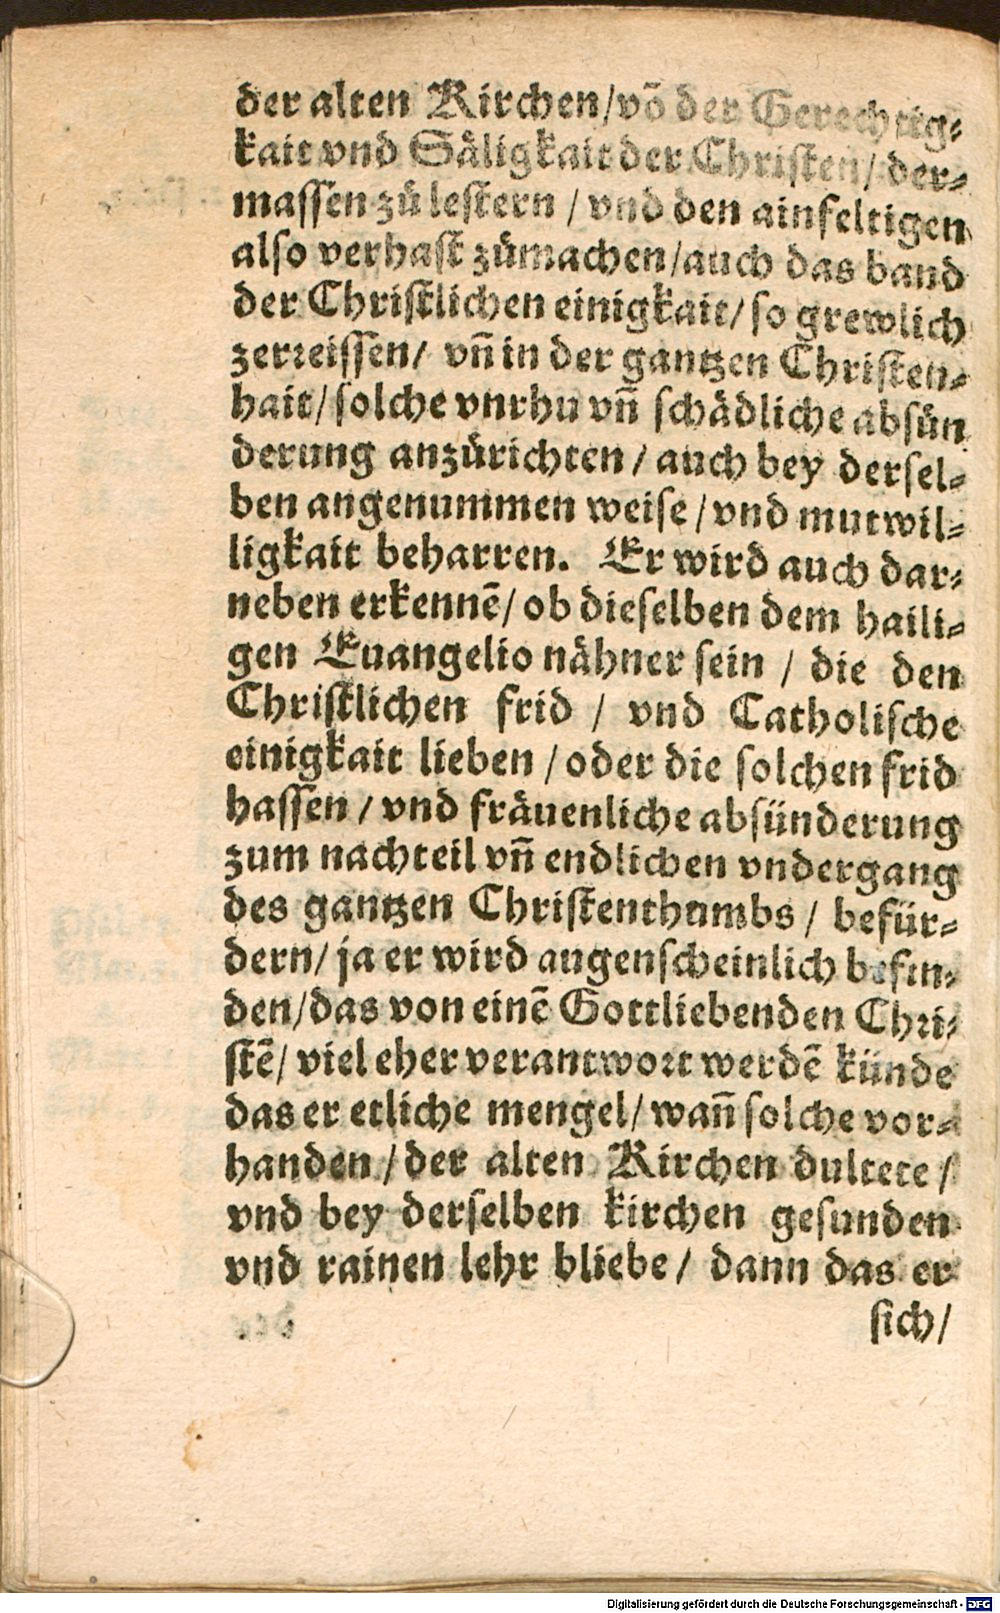 der alten Kirchen/võ der Gerechtig⸗
kait vnd Säligkait der Christen/ der⸗
massen zů lestern / vnd den ainfeltigen
also verhast zůmachen/auch das band
der Christlichen einigkait/ so grewlich
zerreissen/ vñ in der gantzen Christen⸗
hait/ solche vnrhu vñ schädliche absün
derung anzůrichten / auch bey dersel⸗
ben angenummen weise / vnd mutwil⸗
ligkait beharren. Er wird auch dar⸗
neben erkennẽ/ ob dieselben dem haili⸗
gen Euangelio nähner sein / die den
Christlichen frid / vnd Catholische
einigkait lieben / oder die solchen frid
hassen / vnd fräuenliche absünderung
zum nachteil vñ endlichen vndergang
des gantzen Christenthumbs / befür⸗
dern/ ja er wird augenscheinlich befin⸗
den/das von einẽ Gottliebenden Chri⸗
stẽ/ viel eher verantwort werdẽ künde
das er etliche mengel/ wañ solche vor⸗
handen / der alten Kirchen dultete /
vnd bey derselben kirchen gesunden
vnd rainen lehr bliebe / dann das er
sich/
Digitalisierung gefördert durch die Deutsche Forschungsgemeinschaft - DFG